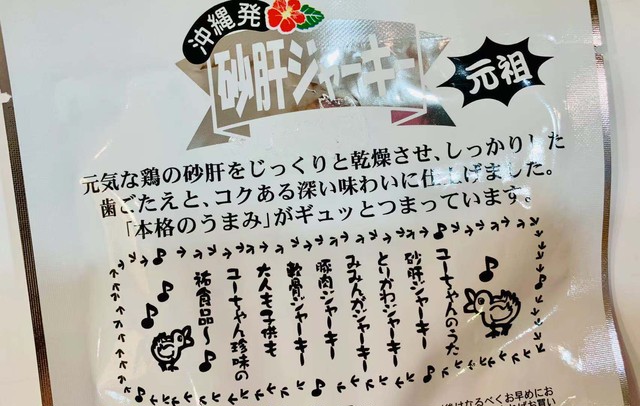 沖縄発
砂肝ジャーキー
元祖
元気な鶏の砂肝をじっくりと乾燥させ、しっかりした
歯ごたえと、コクある深い味わいに仕上げました。
「本格のうまみ」がギュッとつまっています。
コーちゃんのうた
砂肝ジャーキー
とりかわジャーキー
みみんがジャーキー
豚肉ジャーキー
軟骨ジャーキー
大人も子供も
コーちゃん珍味の
祐食品〜♪
けなるべくお早めにお